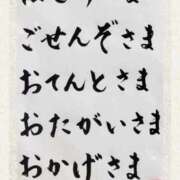 ごせんぞさま
おてんとさま
おたがいさま
おかげさま